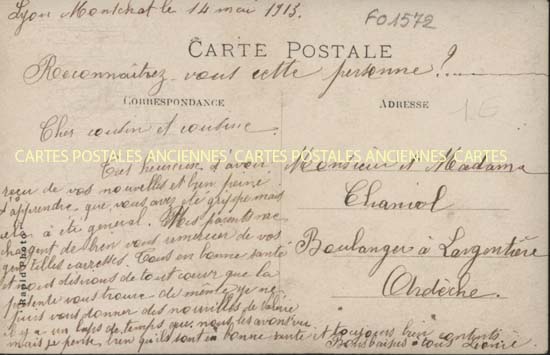 Lyon Montchat le 14 mai 1913.
F01572
CARTE POSTALE
Reconnaitrez vous cette personne?
CORRESPONDANCE
ADRESSE
Cher cousin et cousine
CARTES POSTALES ANCIENNES CARTES POSTALES ANCIENNES CARTES POSTALES ANCIENNES
Très heureuse d'avoir
reçu de vos nouvelles et bien peiné
d'apprendre que vous avez été grippé mais
cela à été general. Mes parents me
chargent de bien vous remercier de vos
gentilles cartes. Tous en bonne santé
et nous désirons de tout cœur que la
présente vous trouve de même. Je ne
puis vous donner des nouvelles de Valérie
il y a un laps de temps que nous les avont vu
mais je pense bien qu'ils sont en bonne santé et toujours bien contents.
Bons baisers à tous Léonie
Monsieur et Madame
Chaniol
Boulanger à Largentière
Ardèche.
Rapid Photo